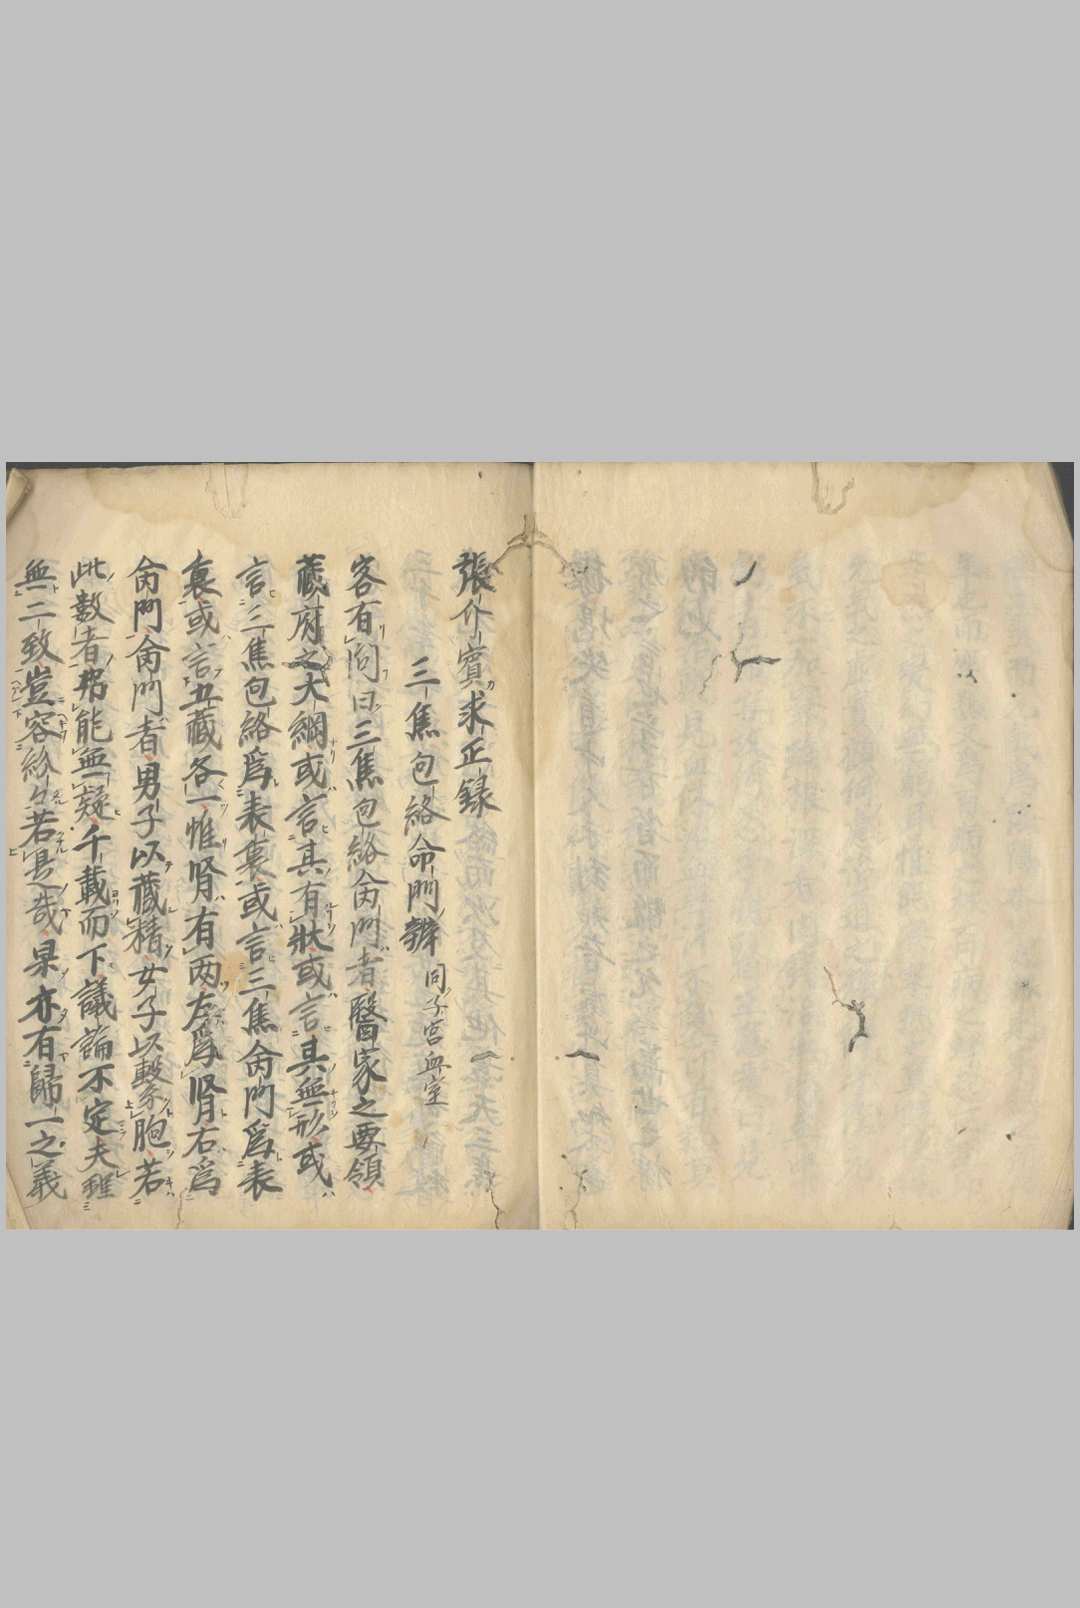 張介賓求正録
三焦包絡命門辨 同子宮血室
客有問曰三焦包絡命門者醫家之要領
藏府之大綱或言其有狀或言其無形或
言三焦包絡爲表裏或言三焦命門爲表
裏或言五藏各一惟腎有两左爲腎右爲
命門命門者男子以藏精女子以繫胞若
此數者弗能無疑千載而下議論不定夫理
無二致豈容紛々若是哉果亦有歸一之義